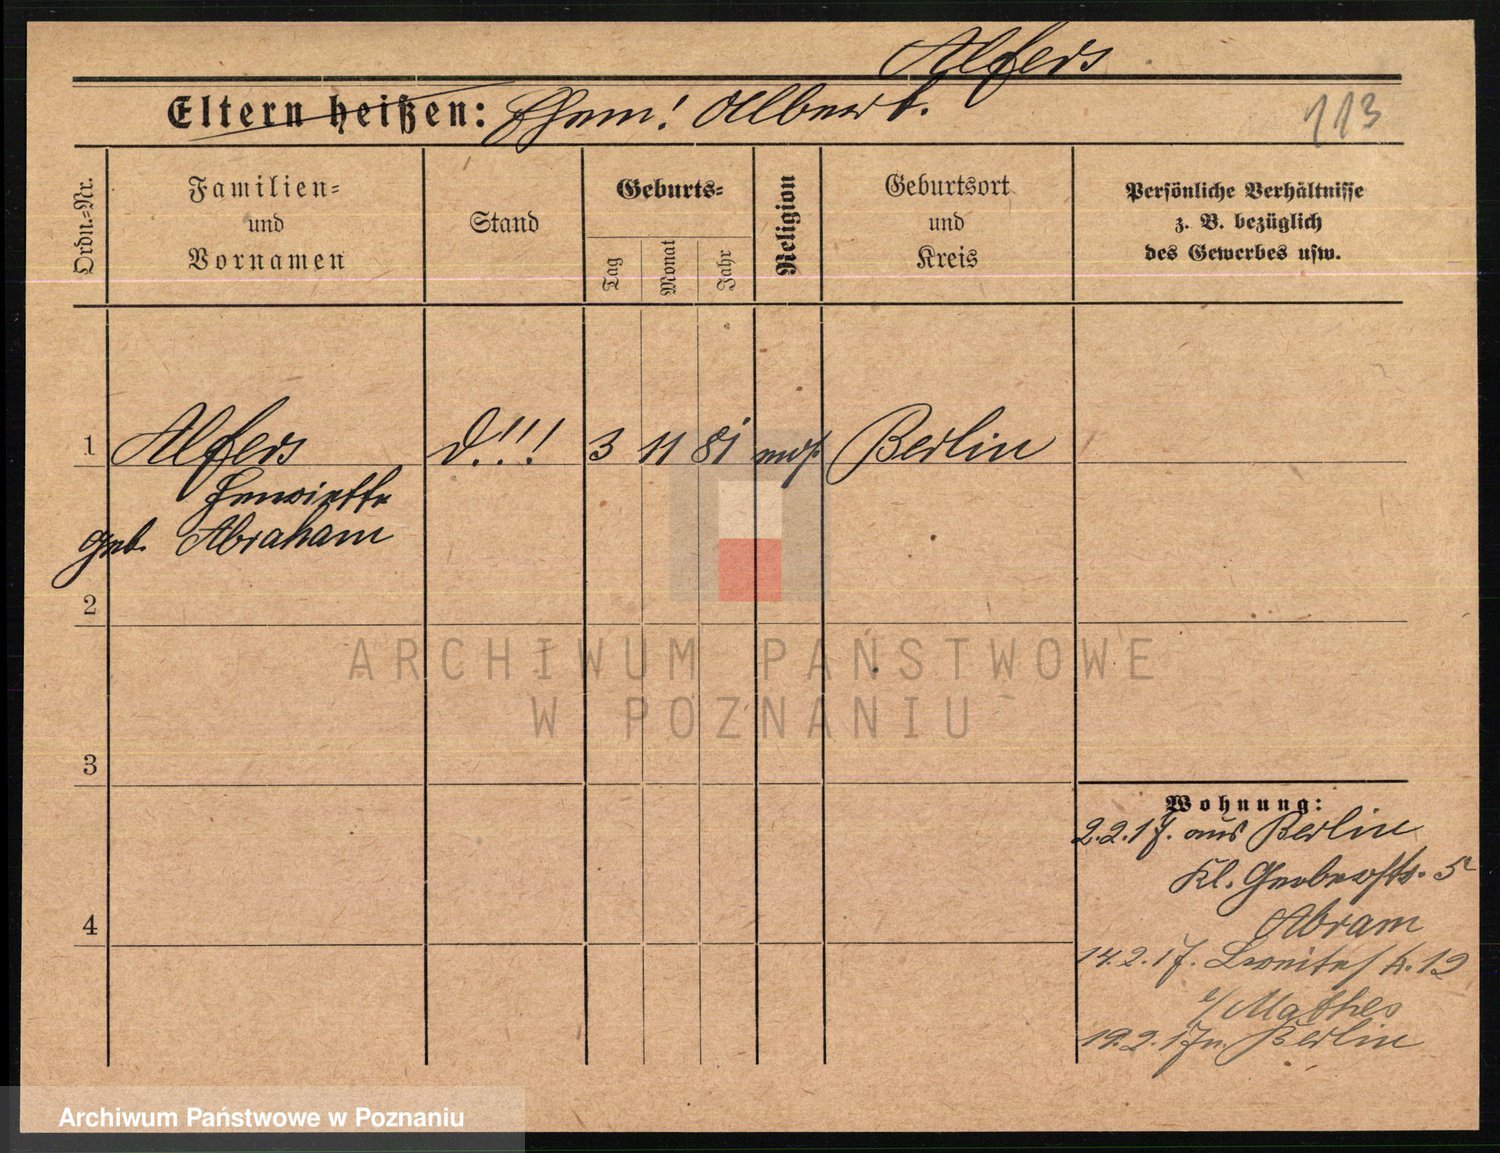 Alfers
Eltern heißen: Ehem! Albert.
113
Ordn.=Nr.
Familien=
und
Vornamen
Stand
Geburts=
Tag
Monat
Jahr
Religion
Geburtsort
und
Kreis
Persönliche Verhältnisse
z. B. bezüglich
des Gewerbes usw.
1 Alfers d.!!! 3 11 81 mos. Berlin
Henriette
geb. Abraham
2
3
4
Wohnung:
2.2.17. aus Berlin
Kl. Gerberstr. 5
Abram
14.2.17. 12
b/ Mathes
19.2.17 n. Berlin
ARCHIWUM PAŃSTWOWE
W POZNANIU
Archiwum Państwowe w Poznaniu